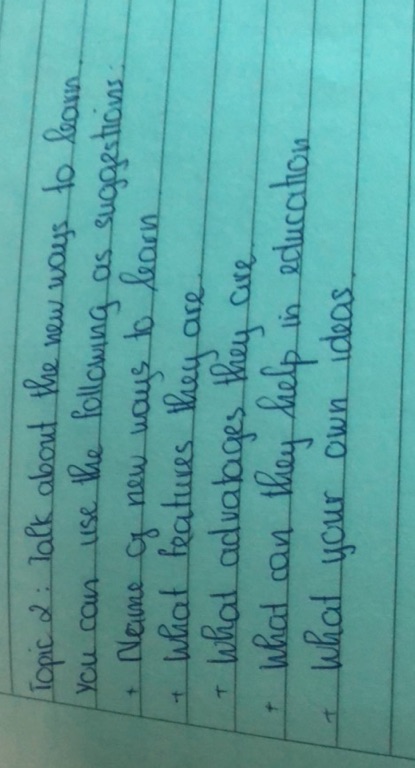 Topic 2: Talk about the new ways to learn.
you can use the following as suggestions:
+ Name of new ways to learn
+ What features they are.
+ What advatages they are.
+ What can they help in education
+ What your own ideas.